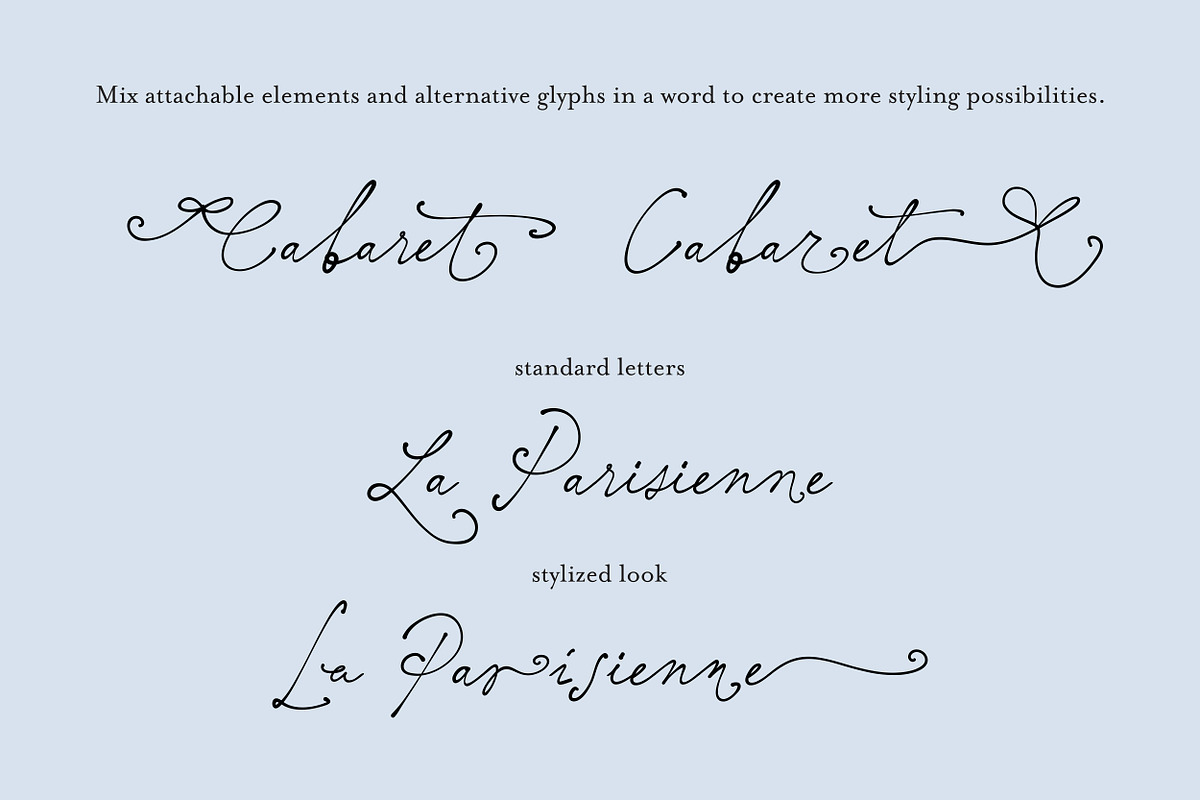 Mix attachable elements and alternative glyphs in a word to create more styling possibilities.
Cabaret Cabaret
standard letters
La Parisienne
stylized look
La Parisienne